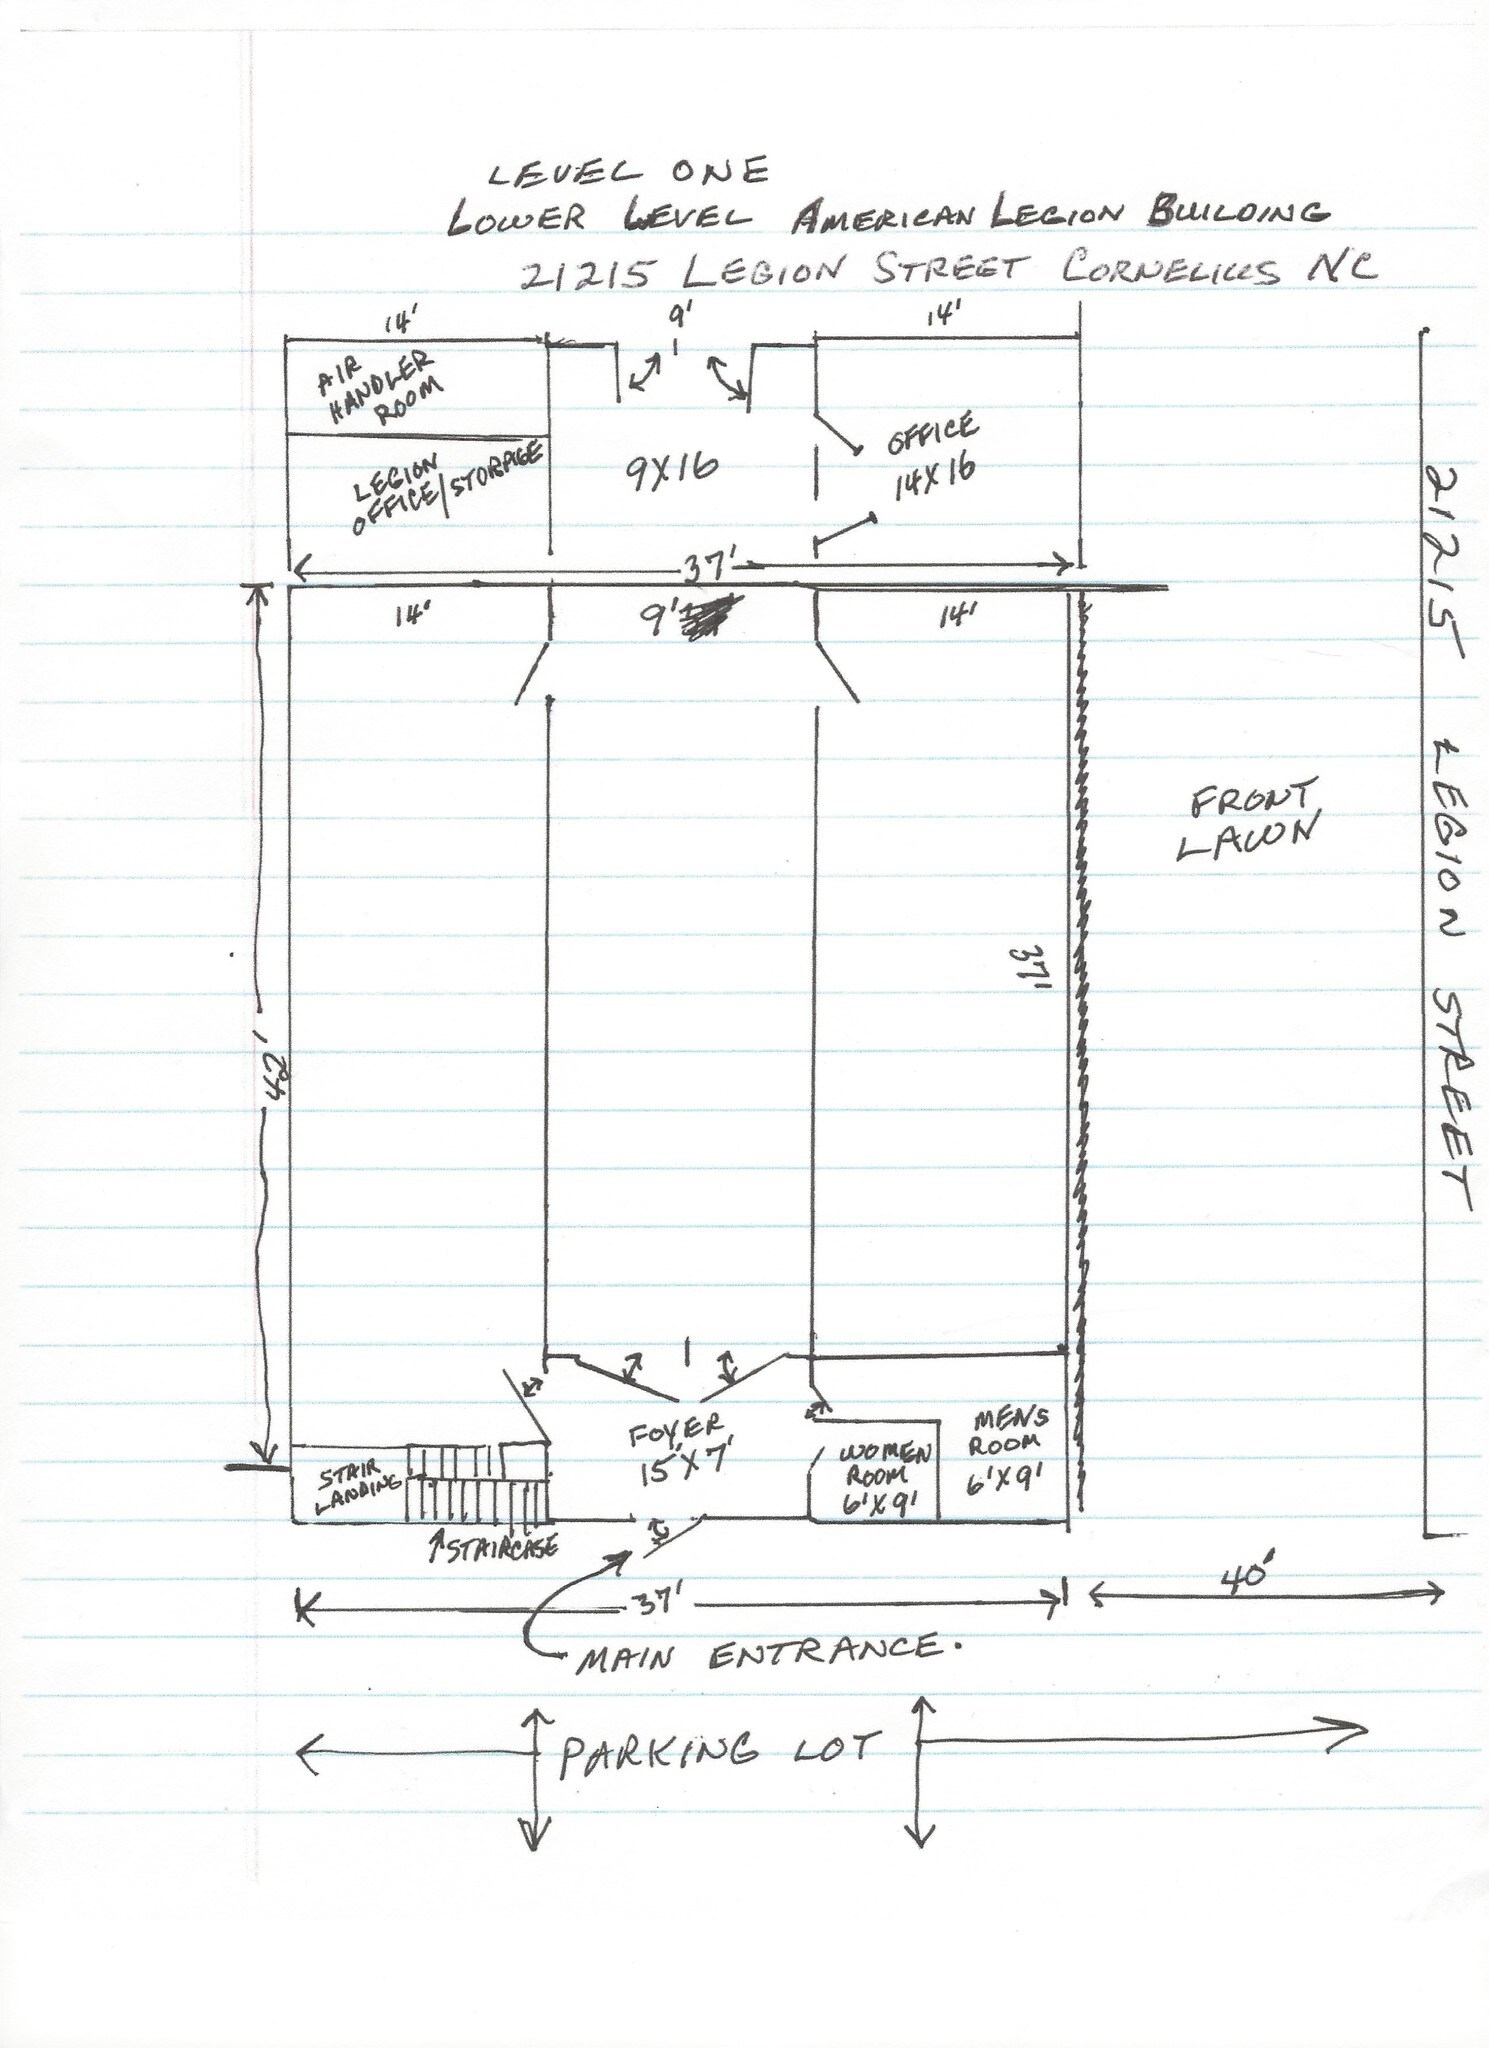 LEVEL ONE
LOWER LEVEL AMERICAN LEGION BUILDING
21215 LEGION STREET CORNELIUS NC
14'
9'
14'
AIR
HANDLER
ROOM
LEGION
OFFICE/STORAGE
9X16
OFFICE
14X16
37'
14'
9'
14'
21215 LEGION STREET
FRONT
LAWN
37'
42'
FOYER
15'X7'
STAIR
LANDING
WOMEN
ROOM
6'X9'
MENS
ROOM
6'X9'
STAIRCASE
37'
40'
MAIN ENTRANCE.
PARKING LOT